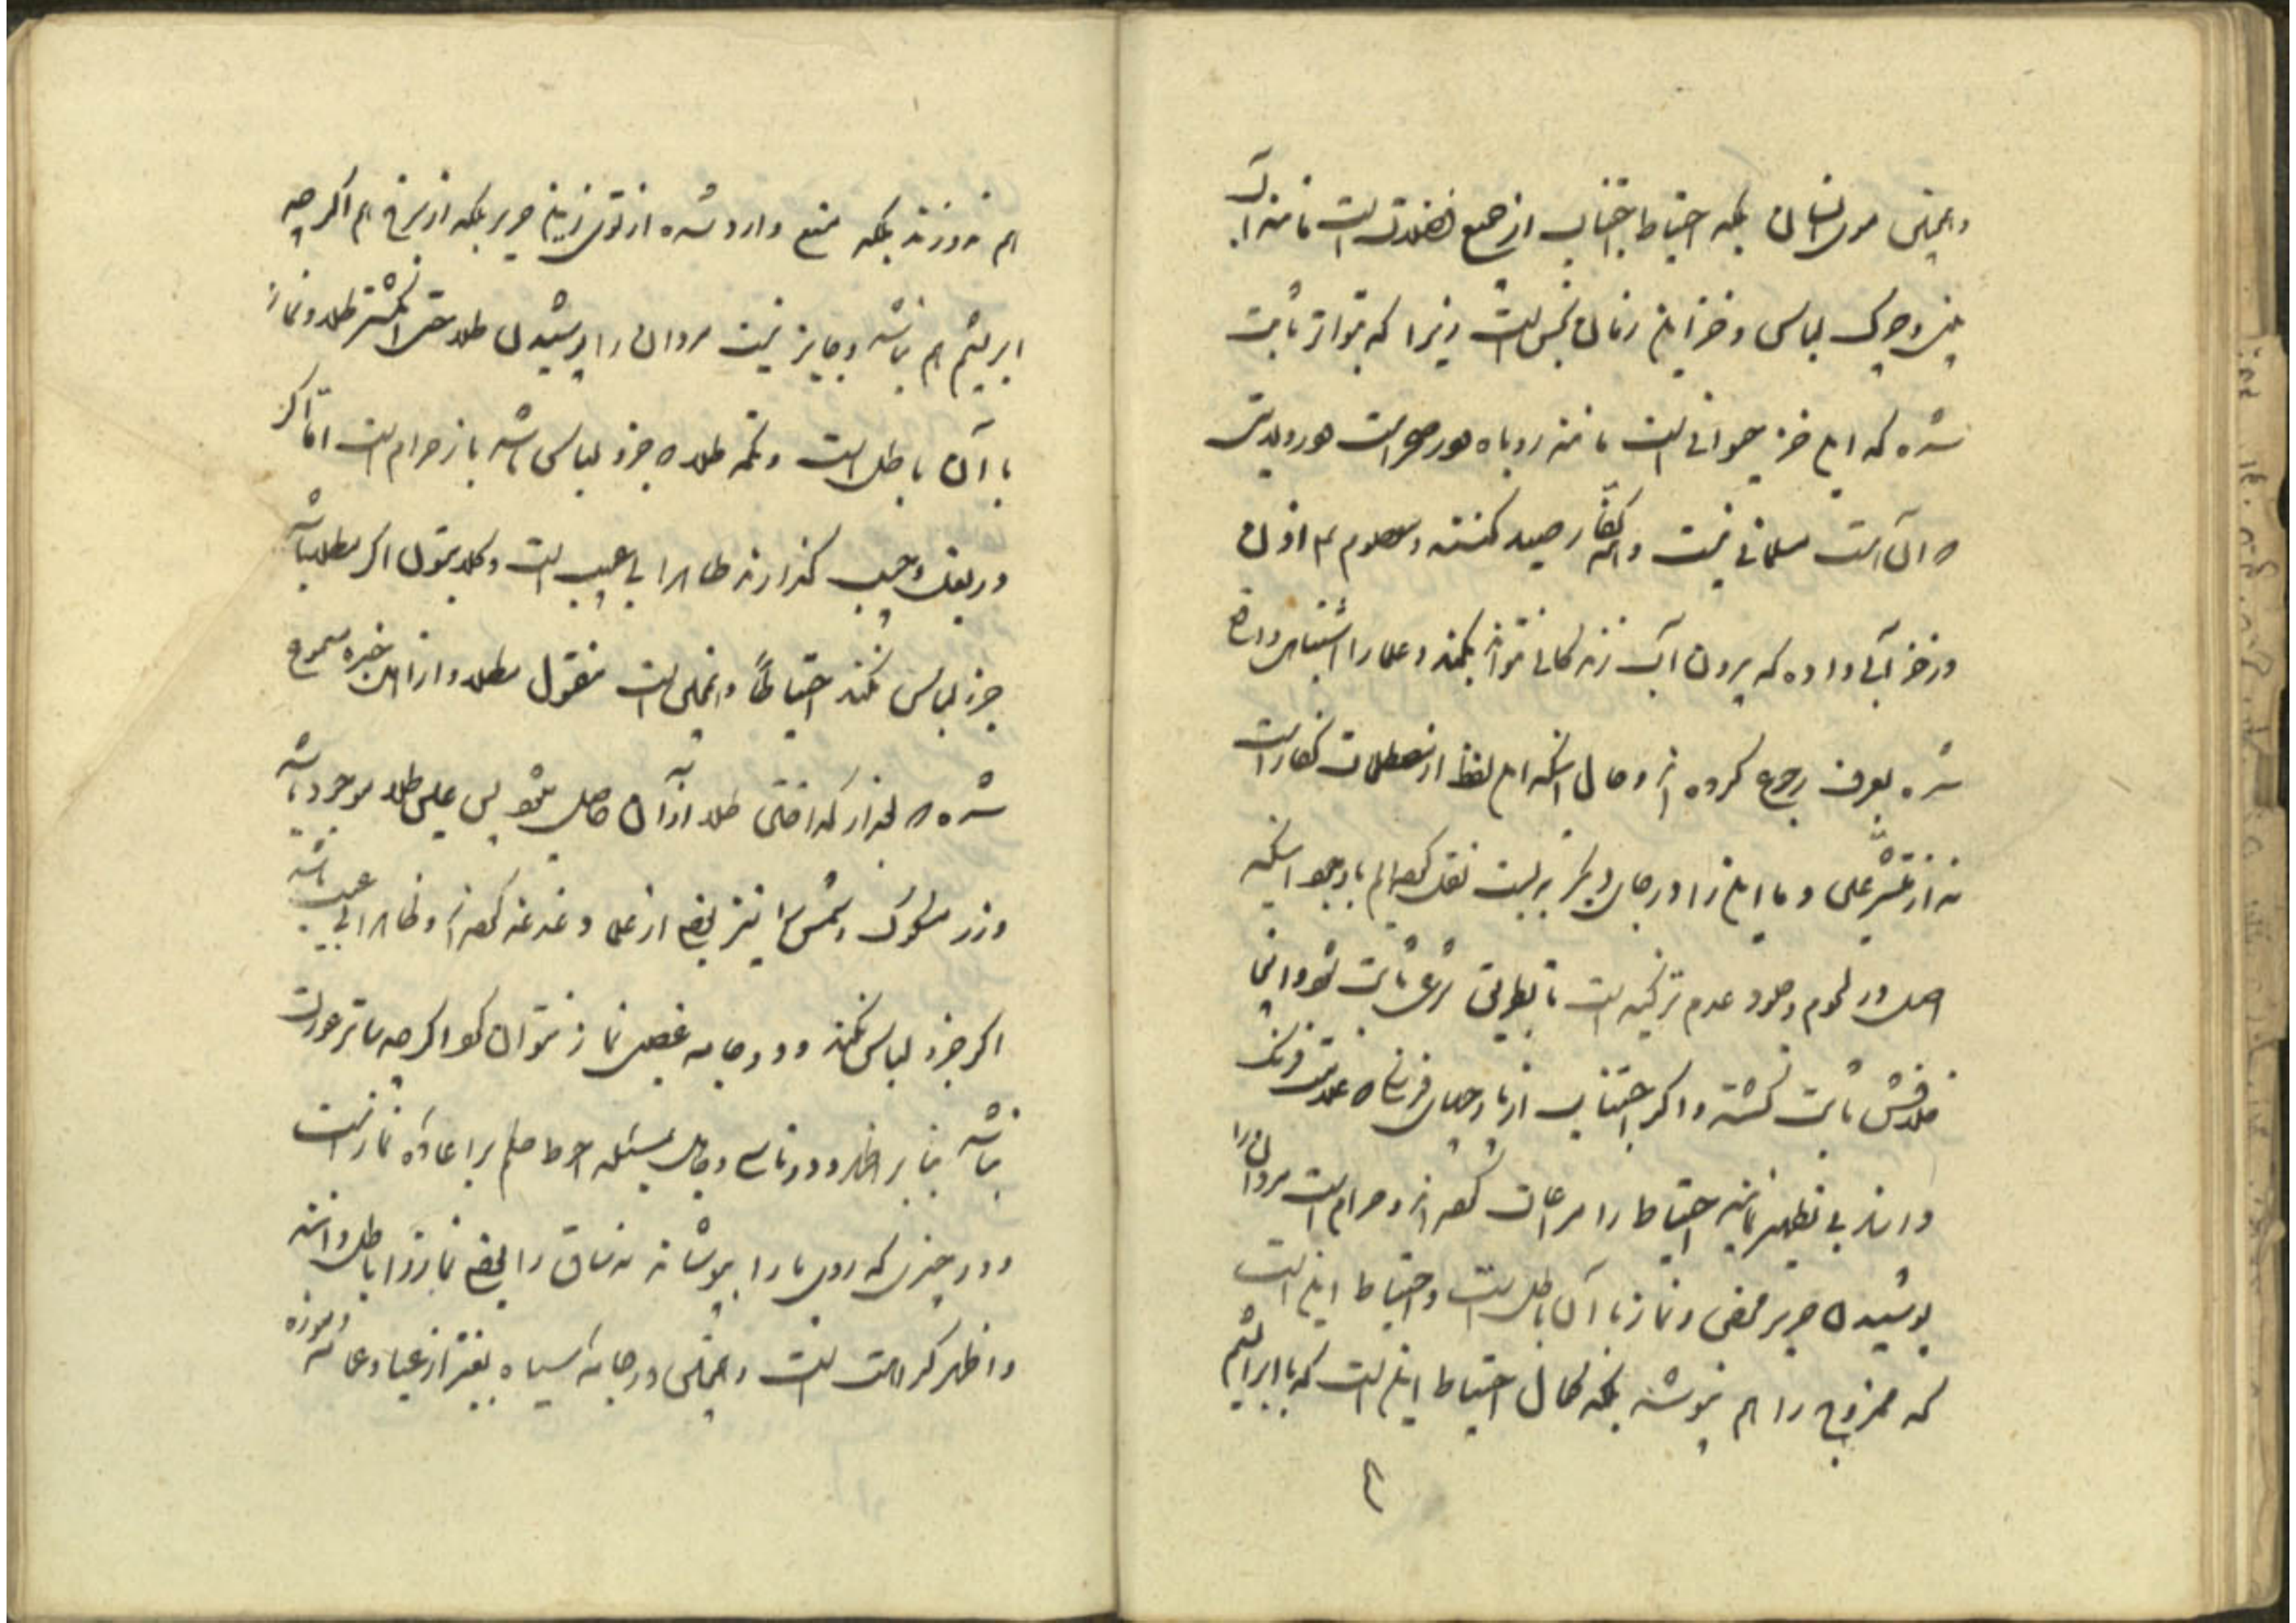 و همچنین موی انسان بلکه احتیاط اجتناب از جمیع فضلات است مانند آب
بینی و چرک لباس و خز این زمان نجس است زیرا که بتواتر ثابت
شده که این خز حیوانی است مانند روباه و در صحراست و در ولایتی
که آن است مسلمانی نیست و همه کفار صید کنند و معصوم هم اذن
در خز آبی داده که بیرون آب زندگانی نتواند بکند و علما را اشتباهی واقع
شده بعرف رجوع کرده‌اند و حال آنکه این لفظ از مصطلحات کفار است
نه از متشرعین و ما این را در جای دیگر به بسط نقل کرده‌ایم با وجود اینکه
اصل در لحوم و جلود عدم تزکیه است تا بطریق شرعی ثابت شود و اینجا
خلافش ثابت گشته و اگر اجتناب از پارچهای فرنگی که علامت فرنگ
دارند بی تطهیر نمایند احتیاط را مراعات کرده‌اند و حرام است مردان را
پوشیدن حریر محض و نماز با آن باطل است و احتیاط این است
که ممزوج را هم نپوشند بلکه کمال احتیاط این است که با ابریشم
هم ندوزند بلکه منع وارد شده از توی زین حریر بلکه از سرخ هم اگر چه
ابریشم هم نباشد و جایز نیست مردان را پوشیدن طلا حتی انگشتر طلا و نماز
با آن باطل است و تکمه طلا که جزو لباس باشد باز حرام است اما اگر
در بغل و جیب گذارند ظاهرا بی عیب است و کلابتون اگر مطلا باشد
جزو لباس نکنند احتیاطاً و همچنین است منقول مطلا و از اهل خبره مسموع
شده که بعد از گداختن طلا از آن حاصل میشود پس عین طلا موجود باشد
و زر مسکوک و شمش را نیز بعضی از علما دغدغه کرده‌اند و ظاهرا بی عیب باشد
اگر جزو لباس نکنند و در جامه غصبی نماز نتوان کرد اگر چه ساتر عورت
نباشد بنا بر اظهر و در ناسی و جاهل مسئله احوط حکم بر اعاده نماز است
و در چیزی که روی پا را بپوشاند نه ساق را بعضی نماز را باطل دانند
و اظهر کراهت است و همچنین در جامه سیاه بغیر از عبا و عمامه و موزه